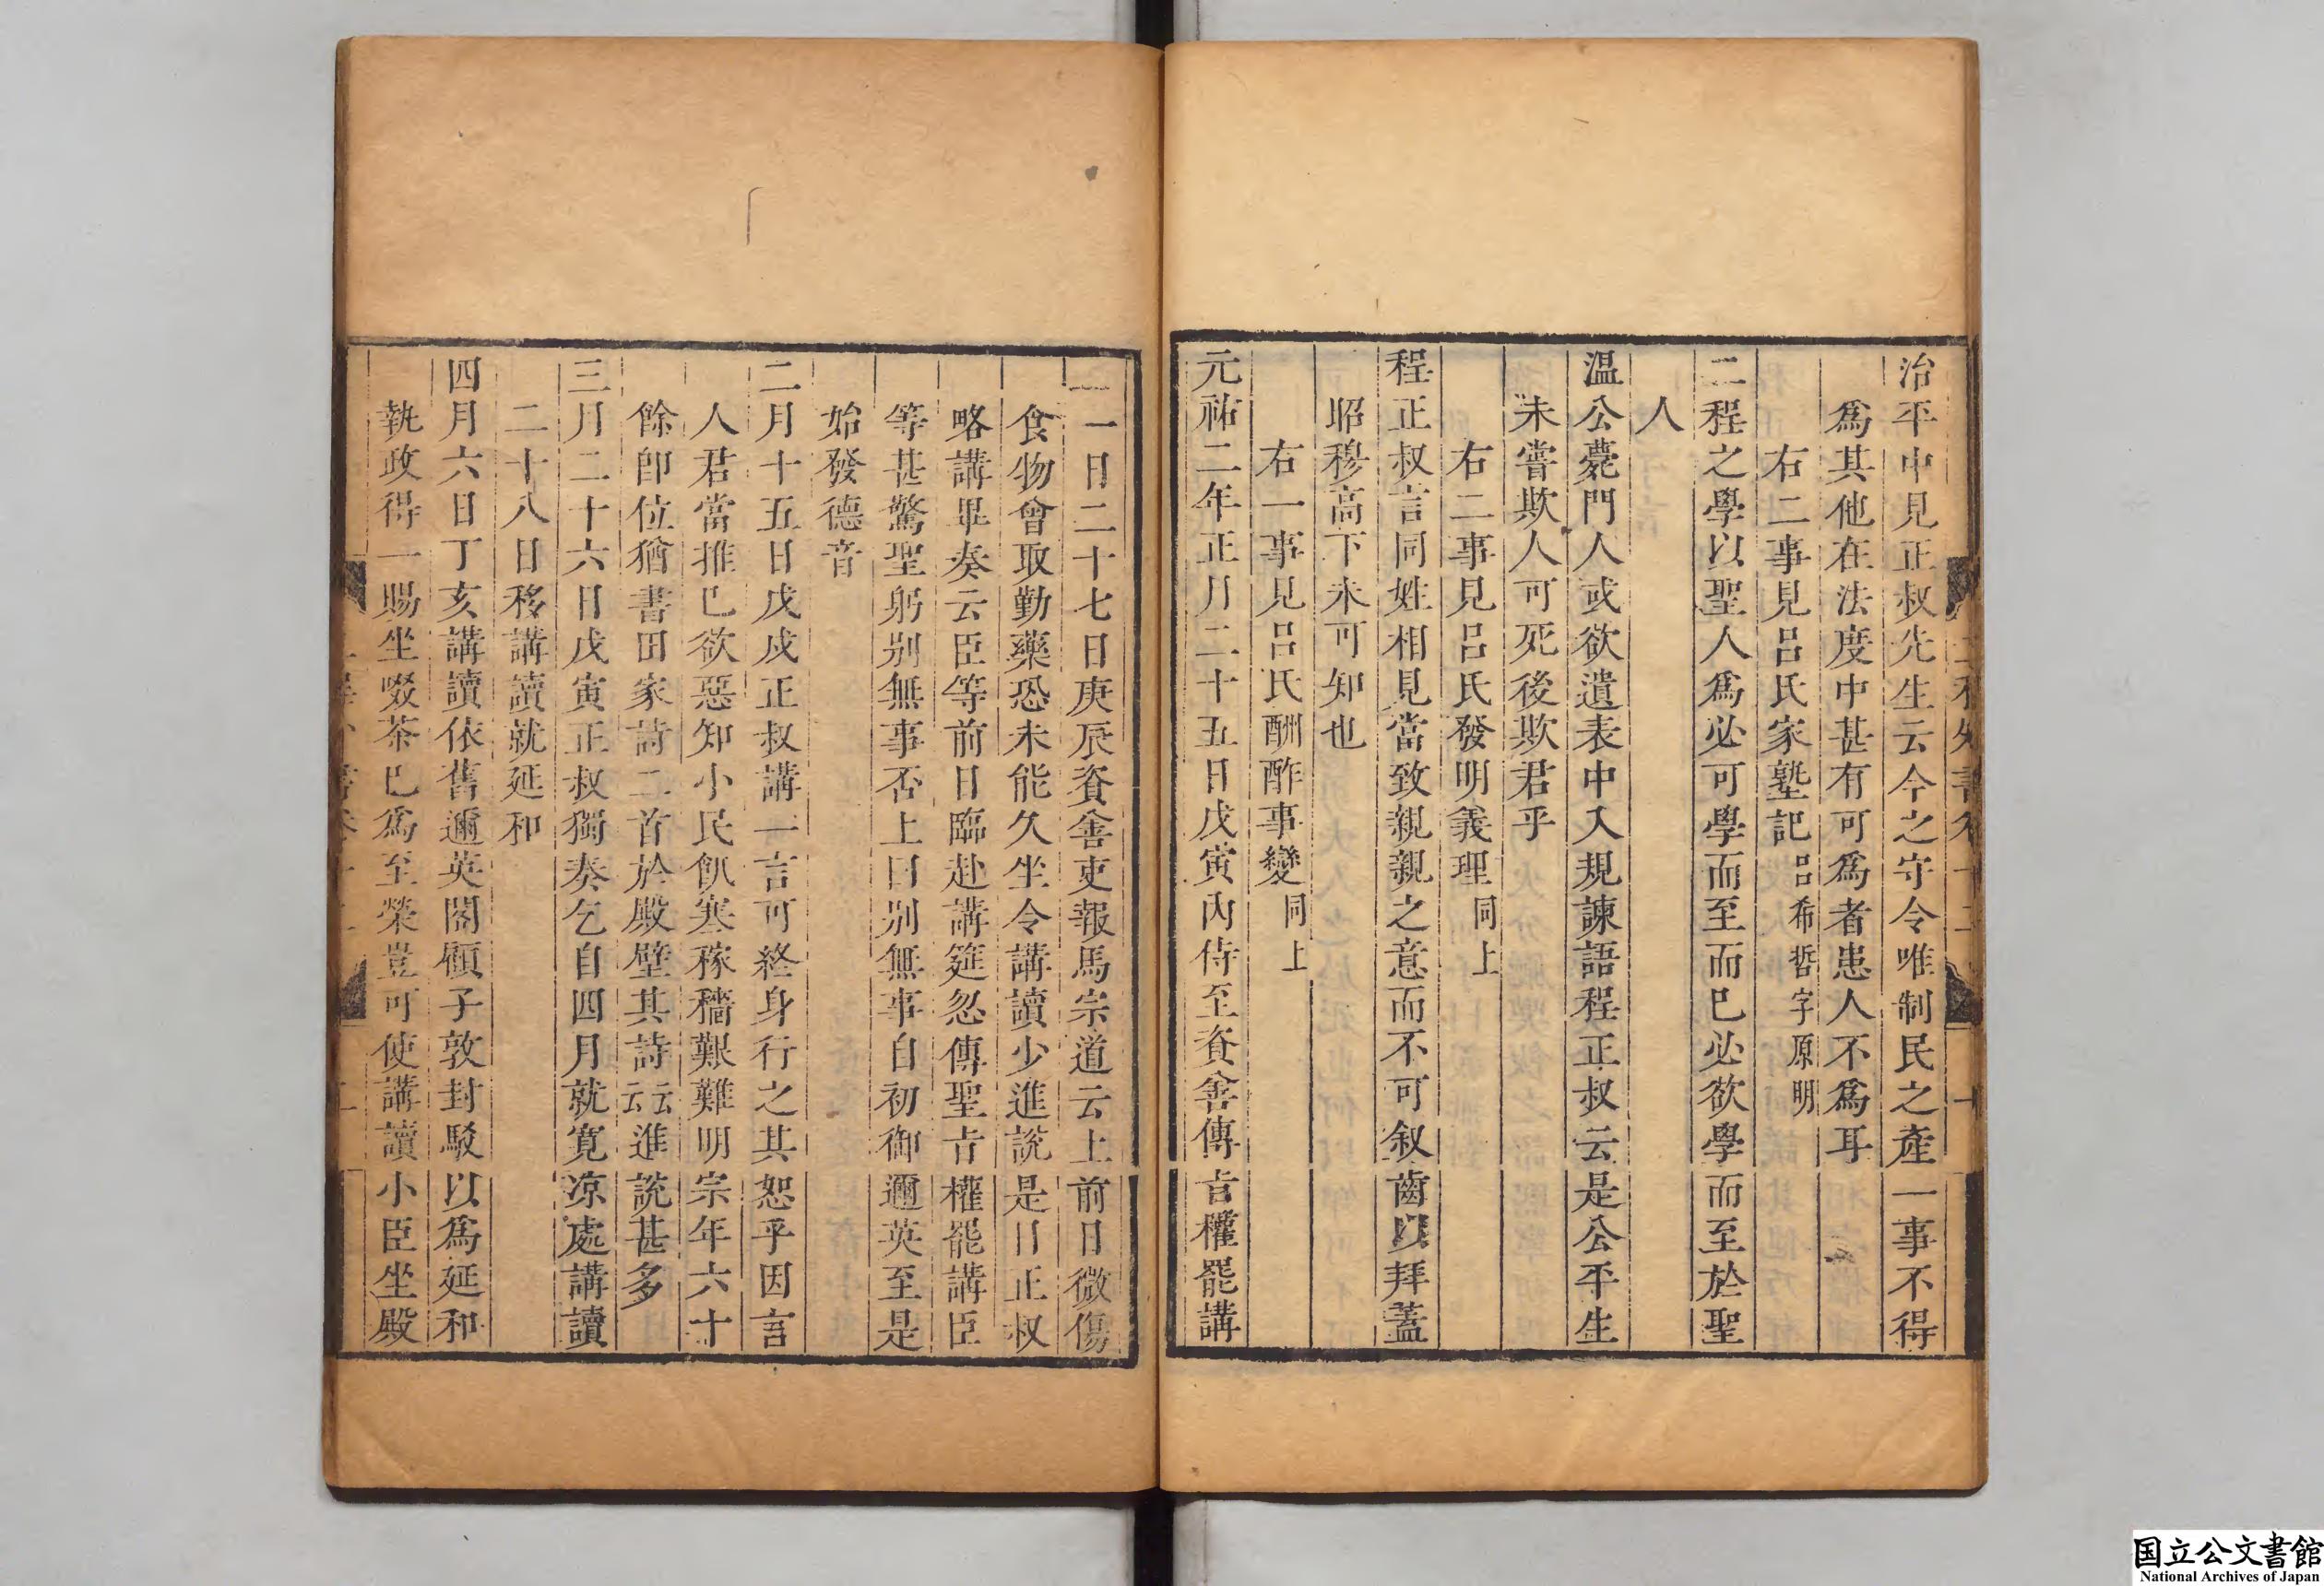 治平中見正叔先生云今之守令唯制民之產一事不得
爲其他在法度中甚有可爲者患人不爲耳
右二事見呂氏家塾記呂希哲字原明
二程之學以聖人爲必可學而至而已必欲學而至於聖
人
温公薨門人或欲遺表中入規諫語程正叔云是公平生
未嘗欺人可死後欺君乎
右二事見呂氏發明義理同上
程正叔言同姓相見當致親親之意而不可叙齒以拜蓋
昭穆高下未可知也
右一事見呂氏酬酢事變同上
元祐二年正月二十五日戊寅內侍至資善傳旨權罷講
一日二十七日庚辰資善吏報馬宗道云上前日微傷
食物曾取動藥恐未能久坐令講讀少進說是日正叔
略講畢奏云臣等前日臨赴講筵忽傳聖旨權罷講臣
等甚驚聖躬别無事否上曰别無事自初御邇英至是
始發德音
二月十五日戊戌正叔講一言可終身行之其恕乎因言
人君當推己欲惡知小民飢寒稼穡艱難明宗年六十
餘即位猶書田家詩二首於殿壁其詩云云進說甚多
三月二十六日戊寅正叔獨奏乞自四月就寬凉處講讀
二十八日移講讀就延和
四月六日丁亥講讀依舊邇英閣顧子敦封駁以爲延和
執政得一賜坐啜茶已爲至榮豈可使講讀小臣坐殿
国立公文書館
National Archives of Japan